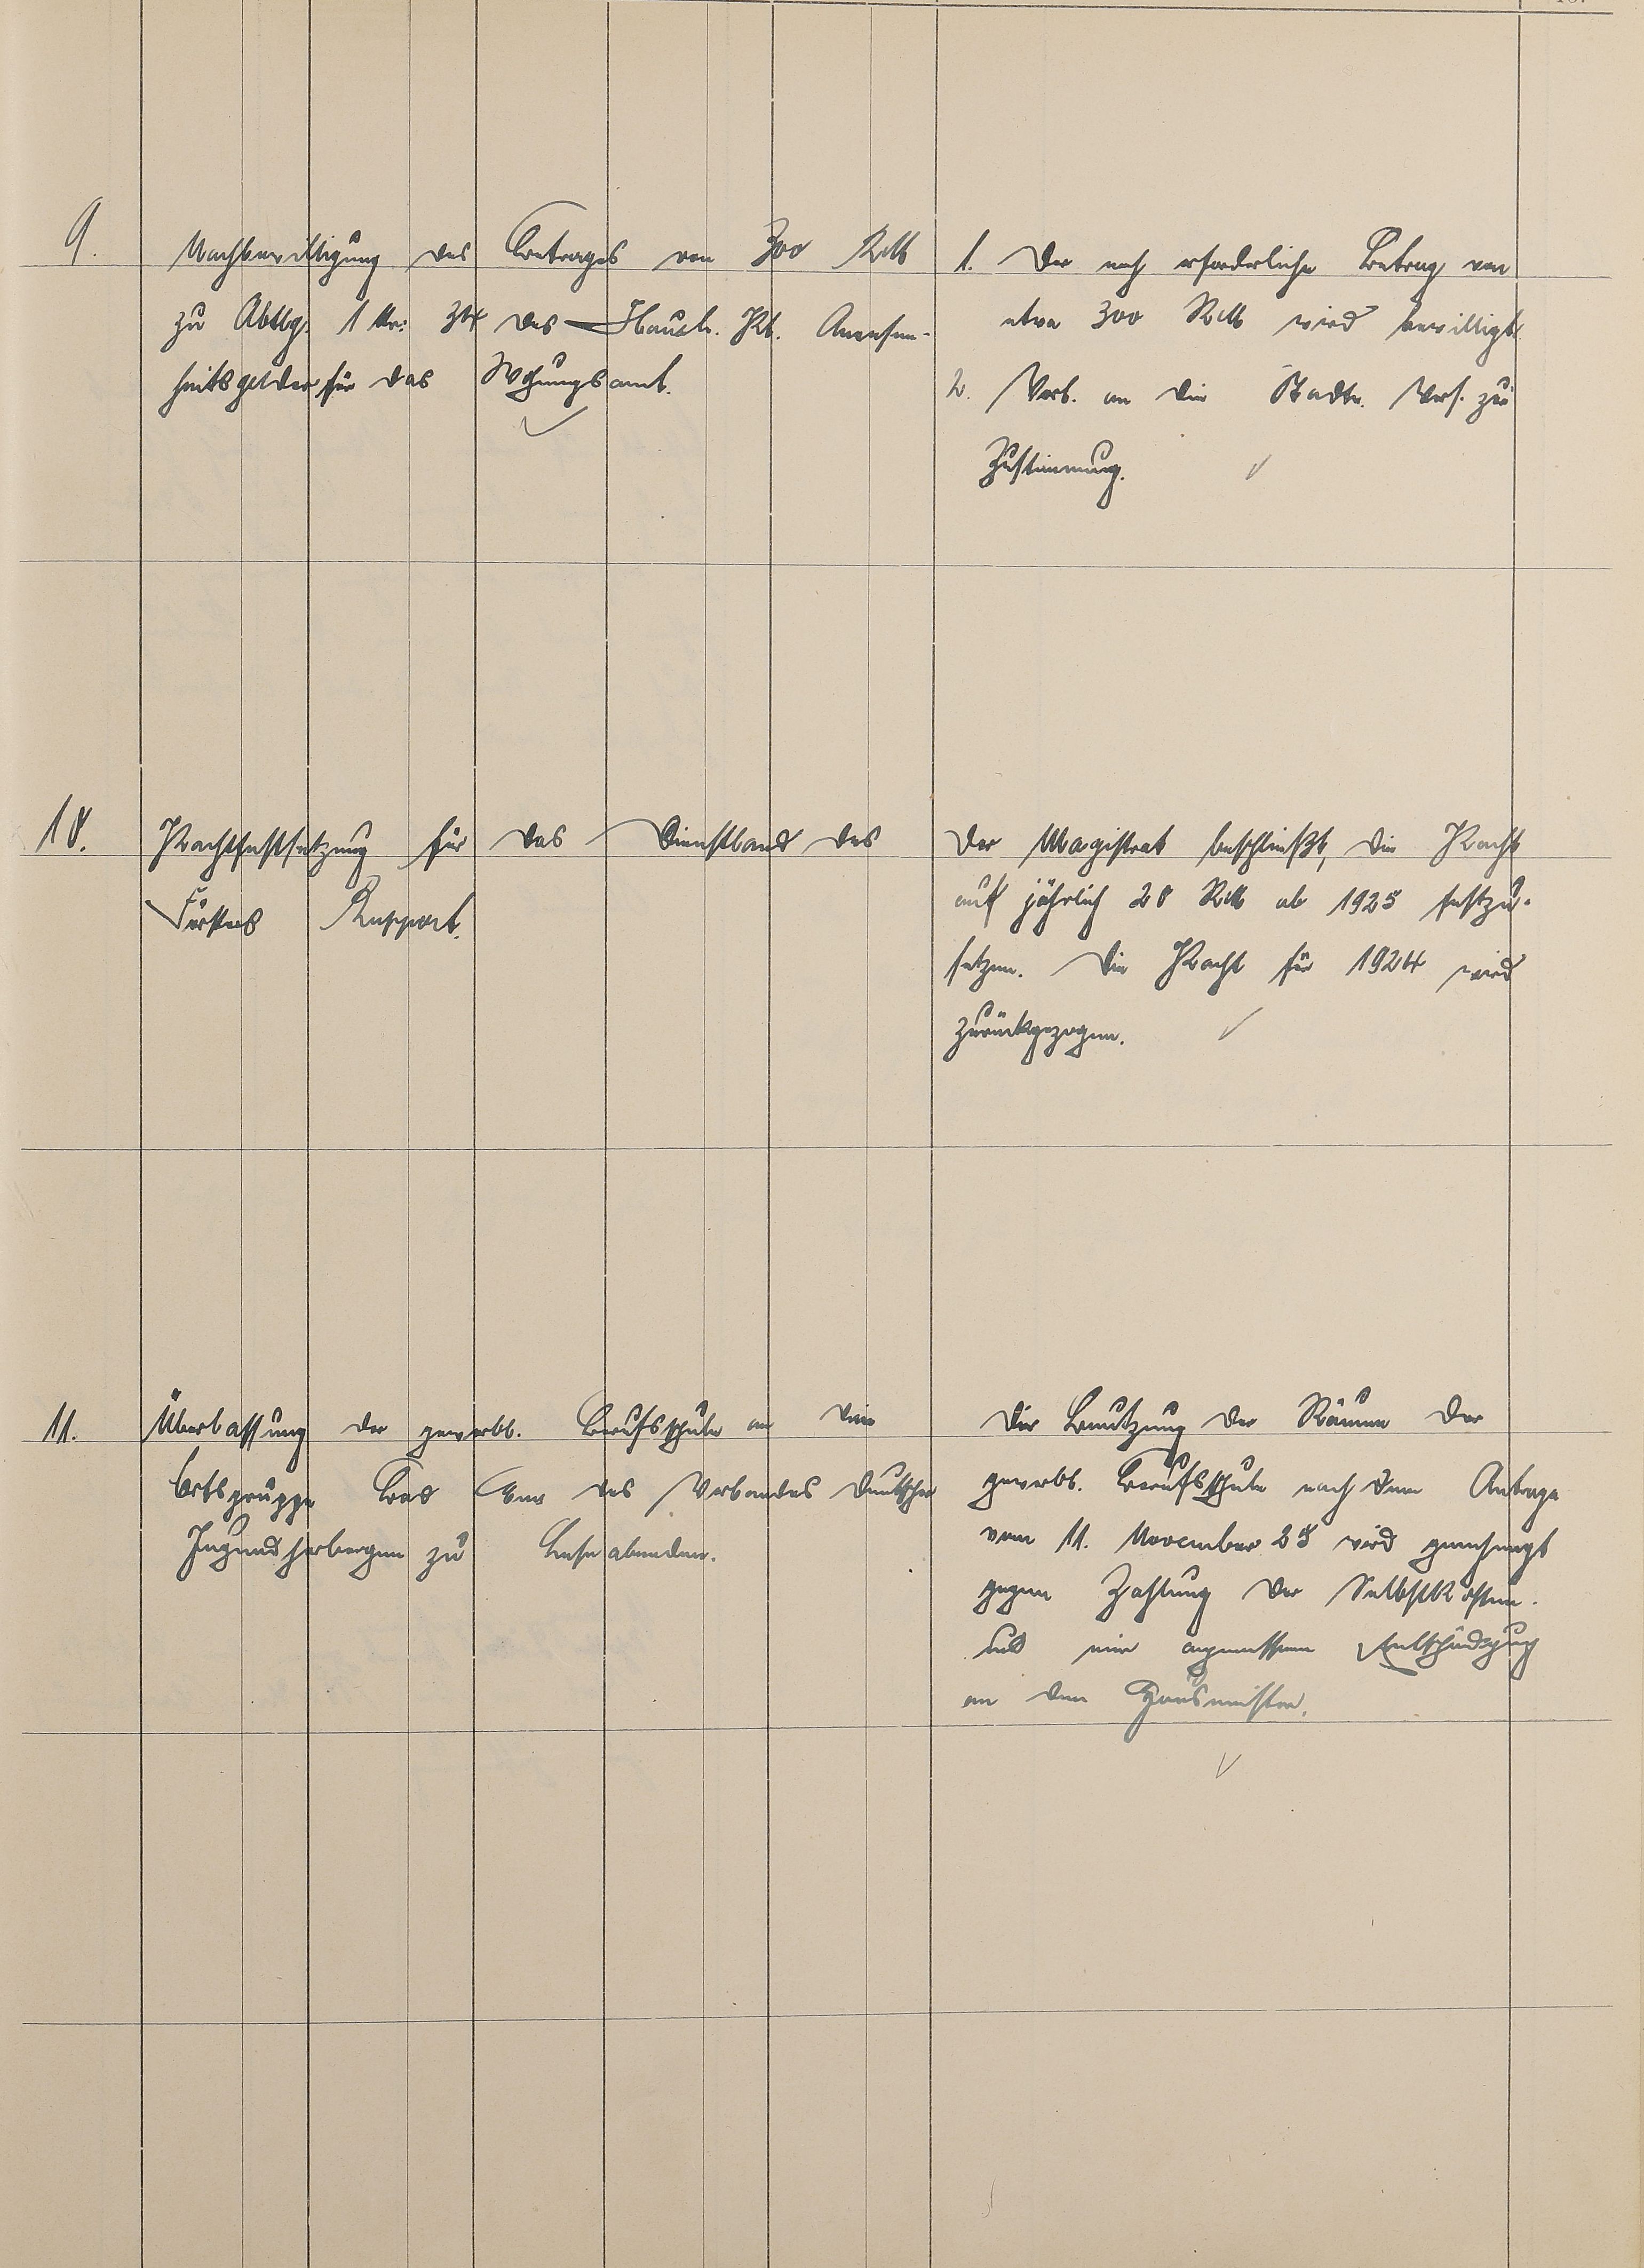 9.
Nachbewilligung des Betrages von 300 RM
zu Abtlg. 1 Nr: 34 des Haush. Pl. Anwesen-
heitsgelder für das Wohgungsamt.
1. Der noch erforderliche Betrag von
etwa 300 RM wird bewilligt.
2. Vorl. an die Stadtv. Vers. zur
Zustimmung.
10.
Pachtfestsetzung für das Dienstland des
Försters Ruppert.
Der Magistrat beschließt, die Pacht
auf jährlich 20 RM ab 1925 festzu-
setzen. Die Pacht für 1924 wird
zurückgezogen.
11.
Überlassung der gewerbl. Berufsschule an die
Ortsgruppe Bad Ems des Verbandes Deutscher
Jugendherbergen zu Leseabenden.
Die Benutzung der Räume der
gewerbl. Berufsschule nach dem Antrage
vom 11. November 25 wird genehmigt
gegen Zahlung der Selbstkosten.
und eine angemessene Entschädigung
an den Hausmeister.